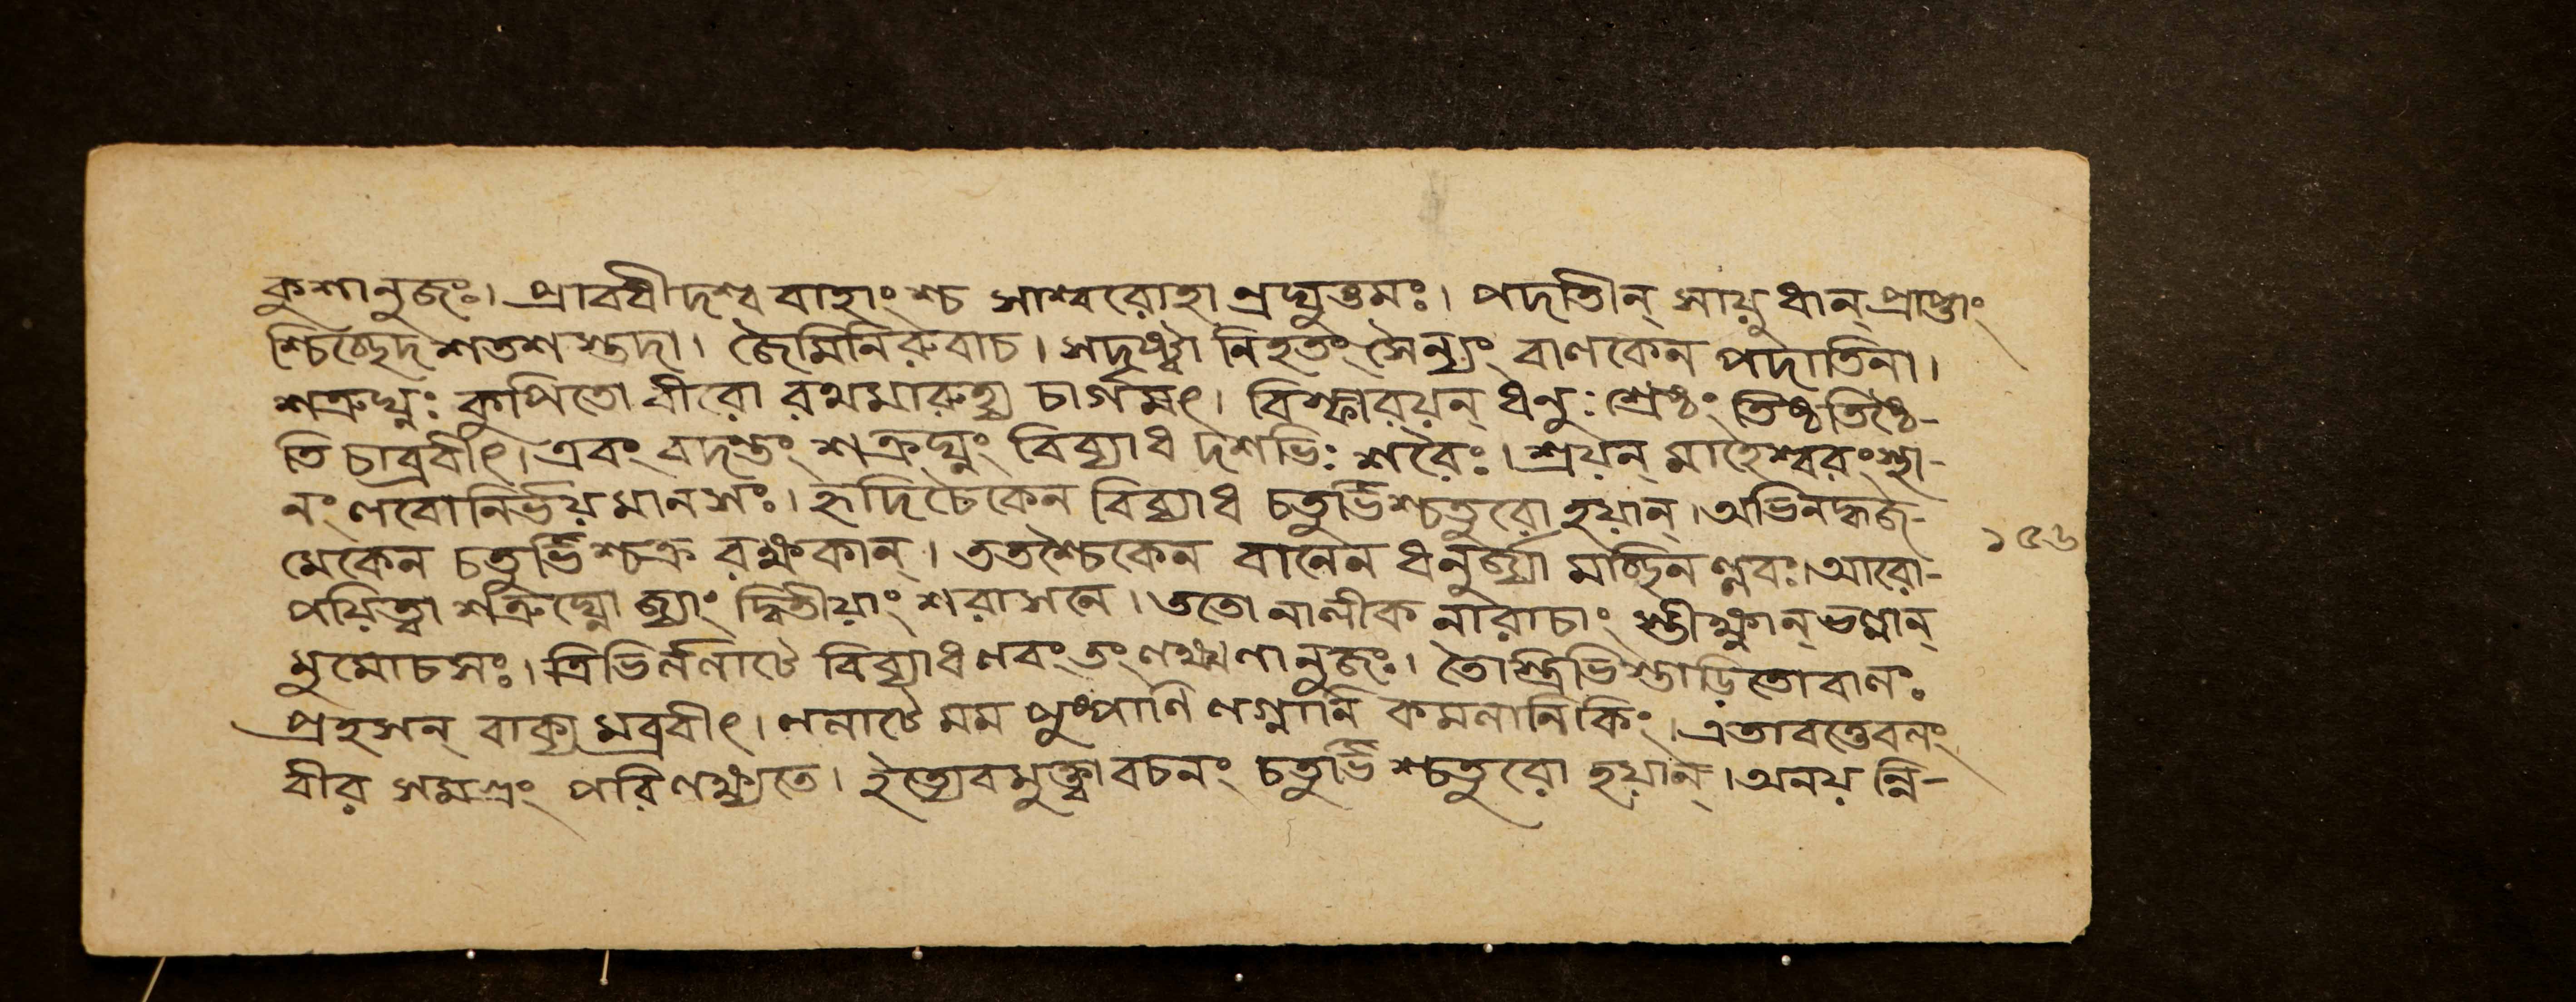 কুশানুজঃ। প্রাববীদশ্ব বাহাংশ্চ সাশ্বরোহা ন্রঘুত্তমঃ। পদাতীন্ সায়ুধান্ প্রাপ্তাং
শ্চিচ্ছেদ শতশ স্তদা। জৈমিনিরুবাচ। সদৃষ্ট্বা নিহতং সৈন্যং বাণকেন পদাতিনা।
শত্রুঘ্নঃ কুপিতো বীরো রথমারুহ্য চাগমৎ। বিস্ফারয়ন্ ধনুঃ শ্রেষ্ঠং তিষ্ঠতিষ্ঠে-
তি চাব্রবীৎ। এবং বদন্তং শত্রুঘ্নং বিব্যাধ দশভিঃ শরৈঃ। শ্রয়ন্ মাহেশ্বরং স্থা-
নং ণবো নির্ভয় মানসঃ। হৃদিচৈকেন বিব্যাধ চতুর্ভিশ্চতুরো হয়ান্। অভিনদ্ধ্বজ-
মেকেন চতুর্ভিশ্চক্র রক্ষকান্। ততশ্চৈকেন বানেন ধনুর্জ্যা মচ্ছিন ণ্ণবঃ। আরো-
পয়িত্বা শত্রুঘ্নো জ্যাং দ্বিতীয়াং শরাসনে। ততো নালীক নারাচাং স্তীক্ষ্ণান্ ভণ্ণান্
মুমোচসঃ। ত্রিভির্ননাটে বিব্যাধ ণবং তং ণক্ষ্মণানুজঃ। তৈস্ত্রিভিস্তাড়িতো বাণঃ
প্রহসন্ বাক্য মব্রবীৎ। ণনাটে মম পুষ্পাণি ণগ্নানি কমনানি কিং। এতাবত্তেবনং
বীর সমগ্রং পরিণক্ষ্যতে। ইত্যেবমুক্ত্বা বচনং চতুর্ভি শ্চতুরো হয়ান্। অনয় ন্নি-
১৫৬